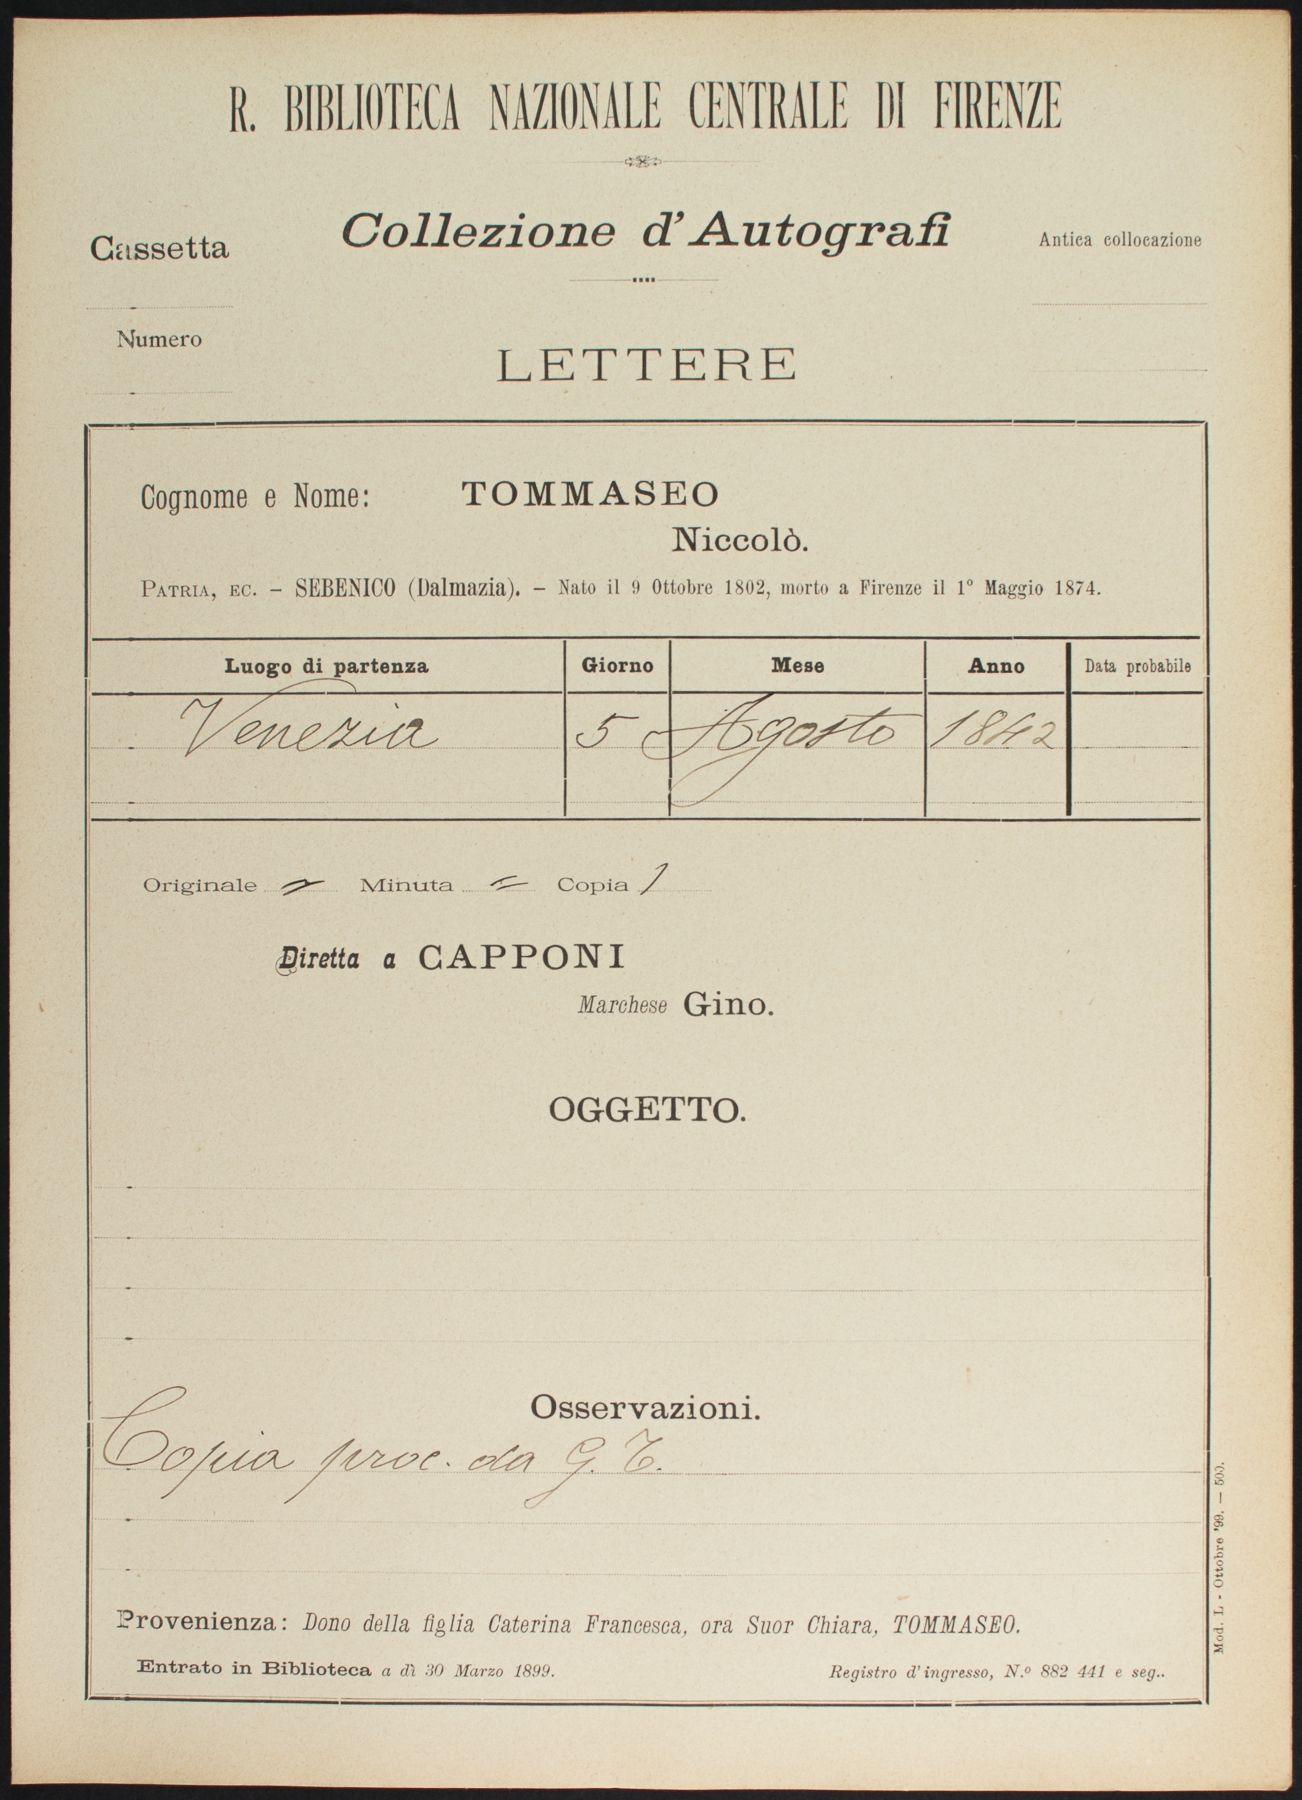 R. BIBLIOTECA NAZIONALE CENTRALE DI FIRENZE
Collezione d'Autografi
Cassetta
Antica collocazione
Numero
LETTERE
Cognome e Nome: TOMMASEO
Niccolò.
PATRIA, EC. - SEBENICO (Dalmazia). - Nato il 9 Ottobre 1802, morto a Firenze il 1º Maggio 1874.
Luogo di partenza Giorno Mese Anno Data probabile
Venezia 5 Agosto 1842
Originale = Minuta = Copia 1
Diretta a CAPPONI
Marchese Gino.
OGGETTO.
Osservazioni.
Copia proc. da G. T.
Provenienza: Dono della figlia Caterina Francesca, ora Suor Chiara, TOMMASEO.
Entrato in Biblioteca a dì 30 Marzo 1899. Registro d'ingresso, N.º 882 441 e seg..
Mod. L - Ottobre '99. — 500.